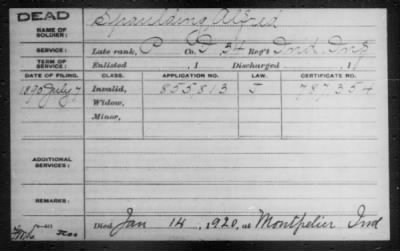 DEAD
NAME OF SOLDIER: Spaulding, Alfred
SERVICE: Late rank, P Co. G, 34 Reg't Ind. Inf
TERM OF SERVICE: Enlisted , 1 Discharged , 1
DATE OF FILING. CLASS. APPLICATION NO. LAW. CERTIFICATE NO.
1890 July 7 Invalid, 855,813 J 787,354
Widow,
Minor,
ADDITIONAL SERVICES:
REMARKS:
Died Jan 14, 1920, at Montpelier Ind